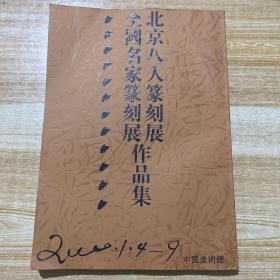 北京八人篆刻展
全國名家篆刻展作品集
2000.1.4—9
中國美術館